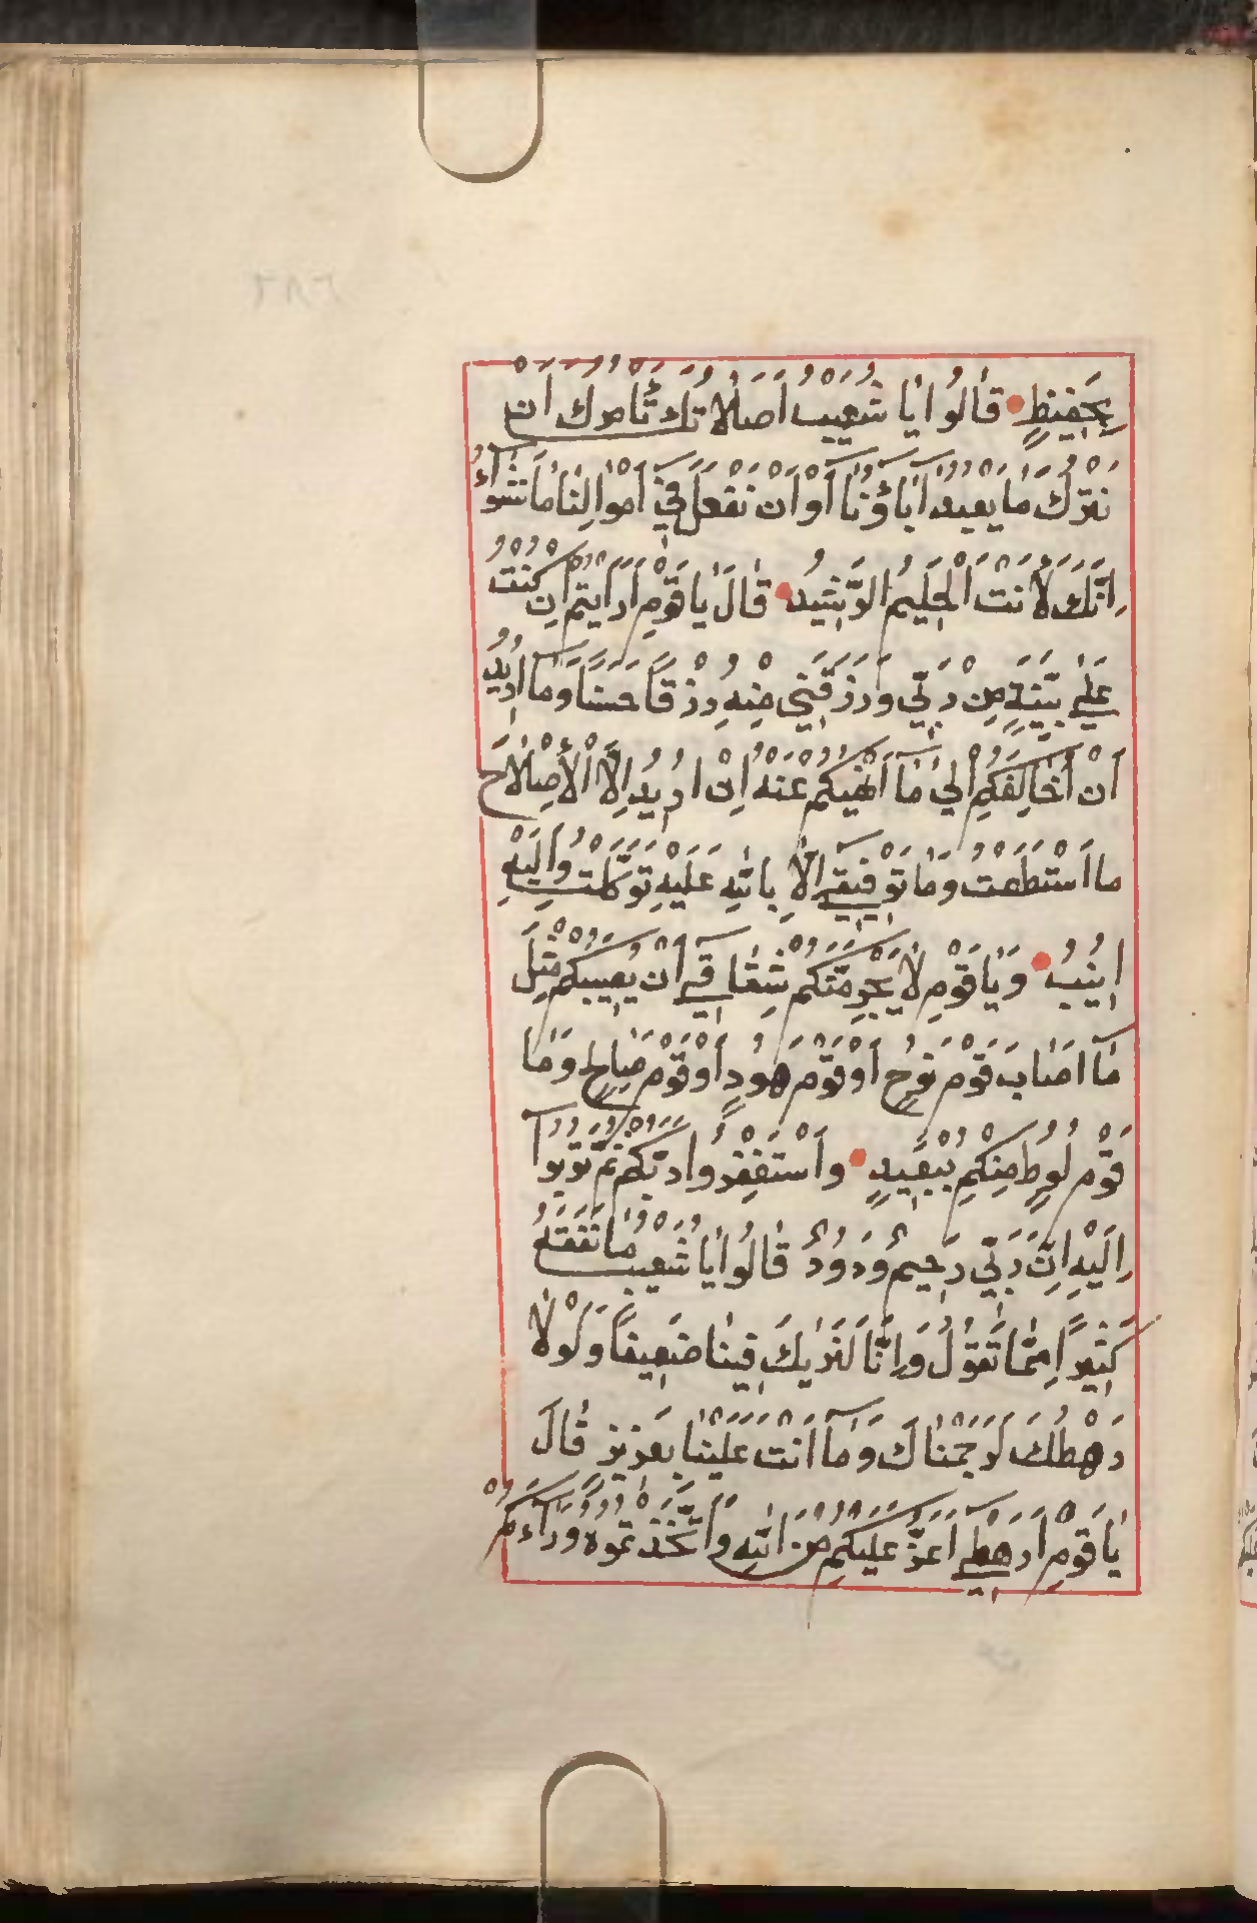 بِحَفِيظٍ قَالُوا يَا شُعَيْبُ اَصَلَاتُكَ تَأْمُرُكَ اَنْ
نَتْرُكَ مَا يَعْبُدُ اٰبَاؤُنَا اَوْ اَنْ نَفْعَلَ فِي اَمْوَالِنَا مَا نَشٰؤُا
اِنَّكَ لَاَنْتَ الْحَلِيمُ الرَّشِيدُ قَالَ يَا قَوْمِ اَرَاَيْتُمْ اِنْ كُنْتُ
عَلٰى بَيِّنَةٍ مِنْ رَبِّي وَرَزَقَنِي مِنْهُ رِزْقًا حَسَنًا وَمَا اُرِيدُ
اَنْ اُخَالِفَكُمْ اِلٰى مَا اَنْهٰيكُمْ عَنْهُ اِنْ اُرِيدُ اِلَّا الْاِصْلَاحَ
مَا اسْتَطَعْتُ وَمَا تَوْفِيقِي اِلَّا بِاللّٰهِ عَلَيْهِ تَوَكَّلْتُ وَاِلَيْهِ
اُنِيبُ وَيَا قَوْمِ لَا يَجْرِمَنَّكُمْ شِقَاقِي اَنْ يُصِيبَكُمْ مِثْلُ
مَا اَصَابَ قَوْمَ نُوحٍ اَوْ قَوْمَ هُودٍ اَوْ قَوْمَ صَالِحٍ وَمَا
قَوْمُ لُوطٍ مِنْكُمْ بِبَعِيدٍ وَاسْتَغْفِرُوا رَبَّكُمْ ثُمَّ تُوبُوا
اِلَيْهِ اِنَّ رَبِّي رَحِيمٌ وَدُودٌ قَالُوا يَا شُعَيْبُ مَا نَفْقَهُ
كَثِيرًا مِمَّا تَقُولُ وَاِنَّا لَنَرٰيكَ فِينَا ضَعِيفًا وَلَوْلَا
رَهْطُكَ لَرَجَمْنَاكَ وَمَا اَنْتَ عَلَيْنَا بِعَزِيزٍ قَالَ
يَا قَوْمِ اَرَهْطِي اَعَزُّ عَلَيْكُمْ مِنَ اللّٰهِ وَاتَّخَذْتُمُوهُ وَرَاءَكُمْ